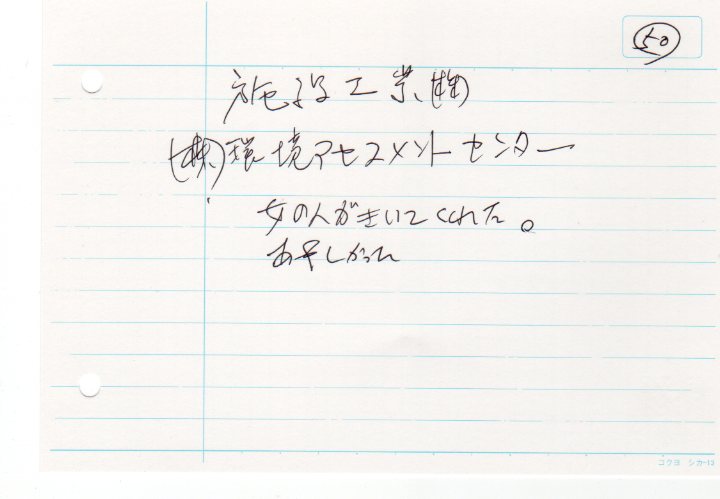 50
施設工業(株)
(株)環境アセスメントセンター
女の人がきいてくれた。
コクヨ シカ-13